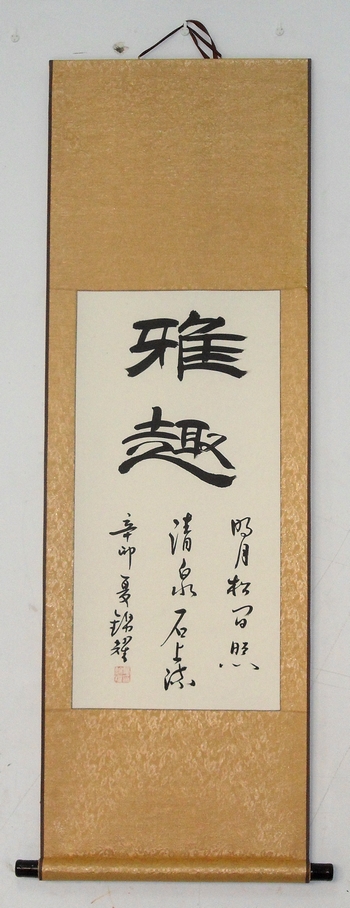 雅趣
明月松间照
清泉石上流
辛卯夏锦耀